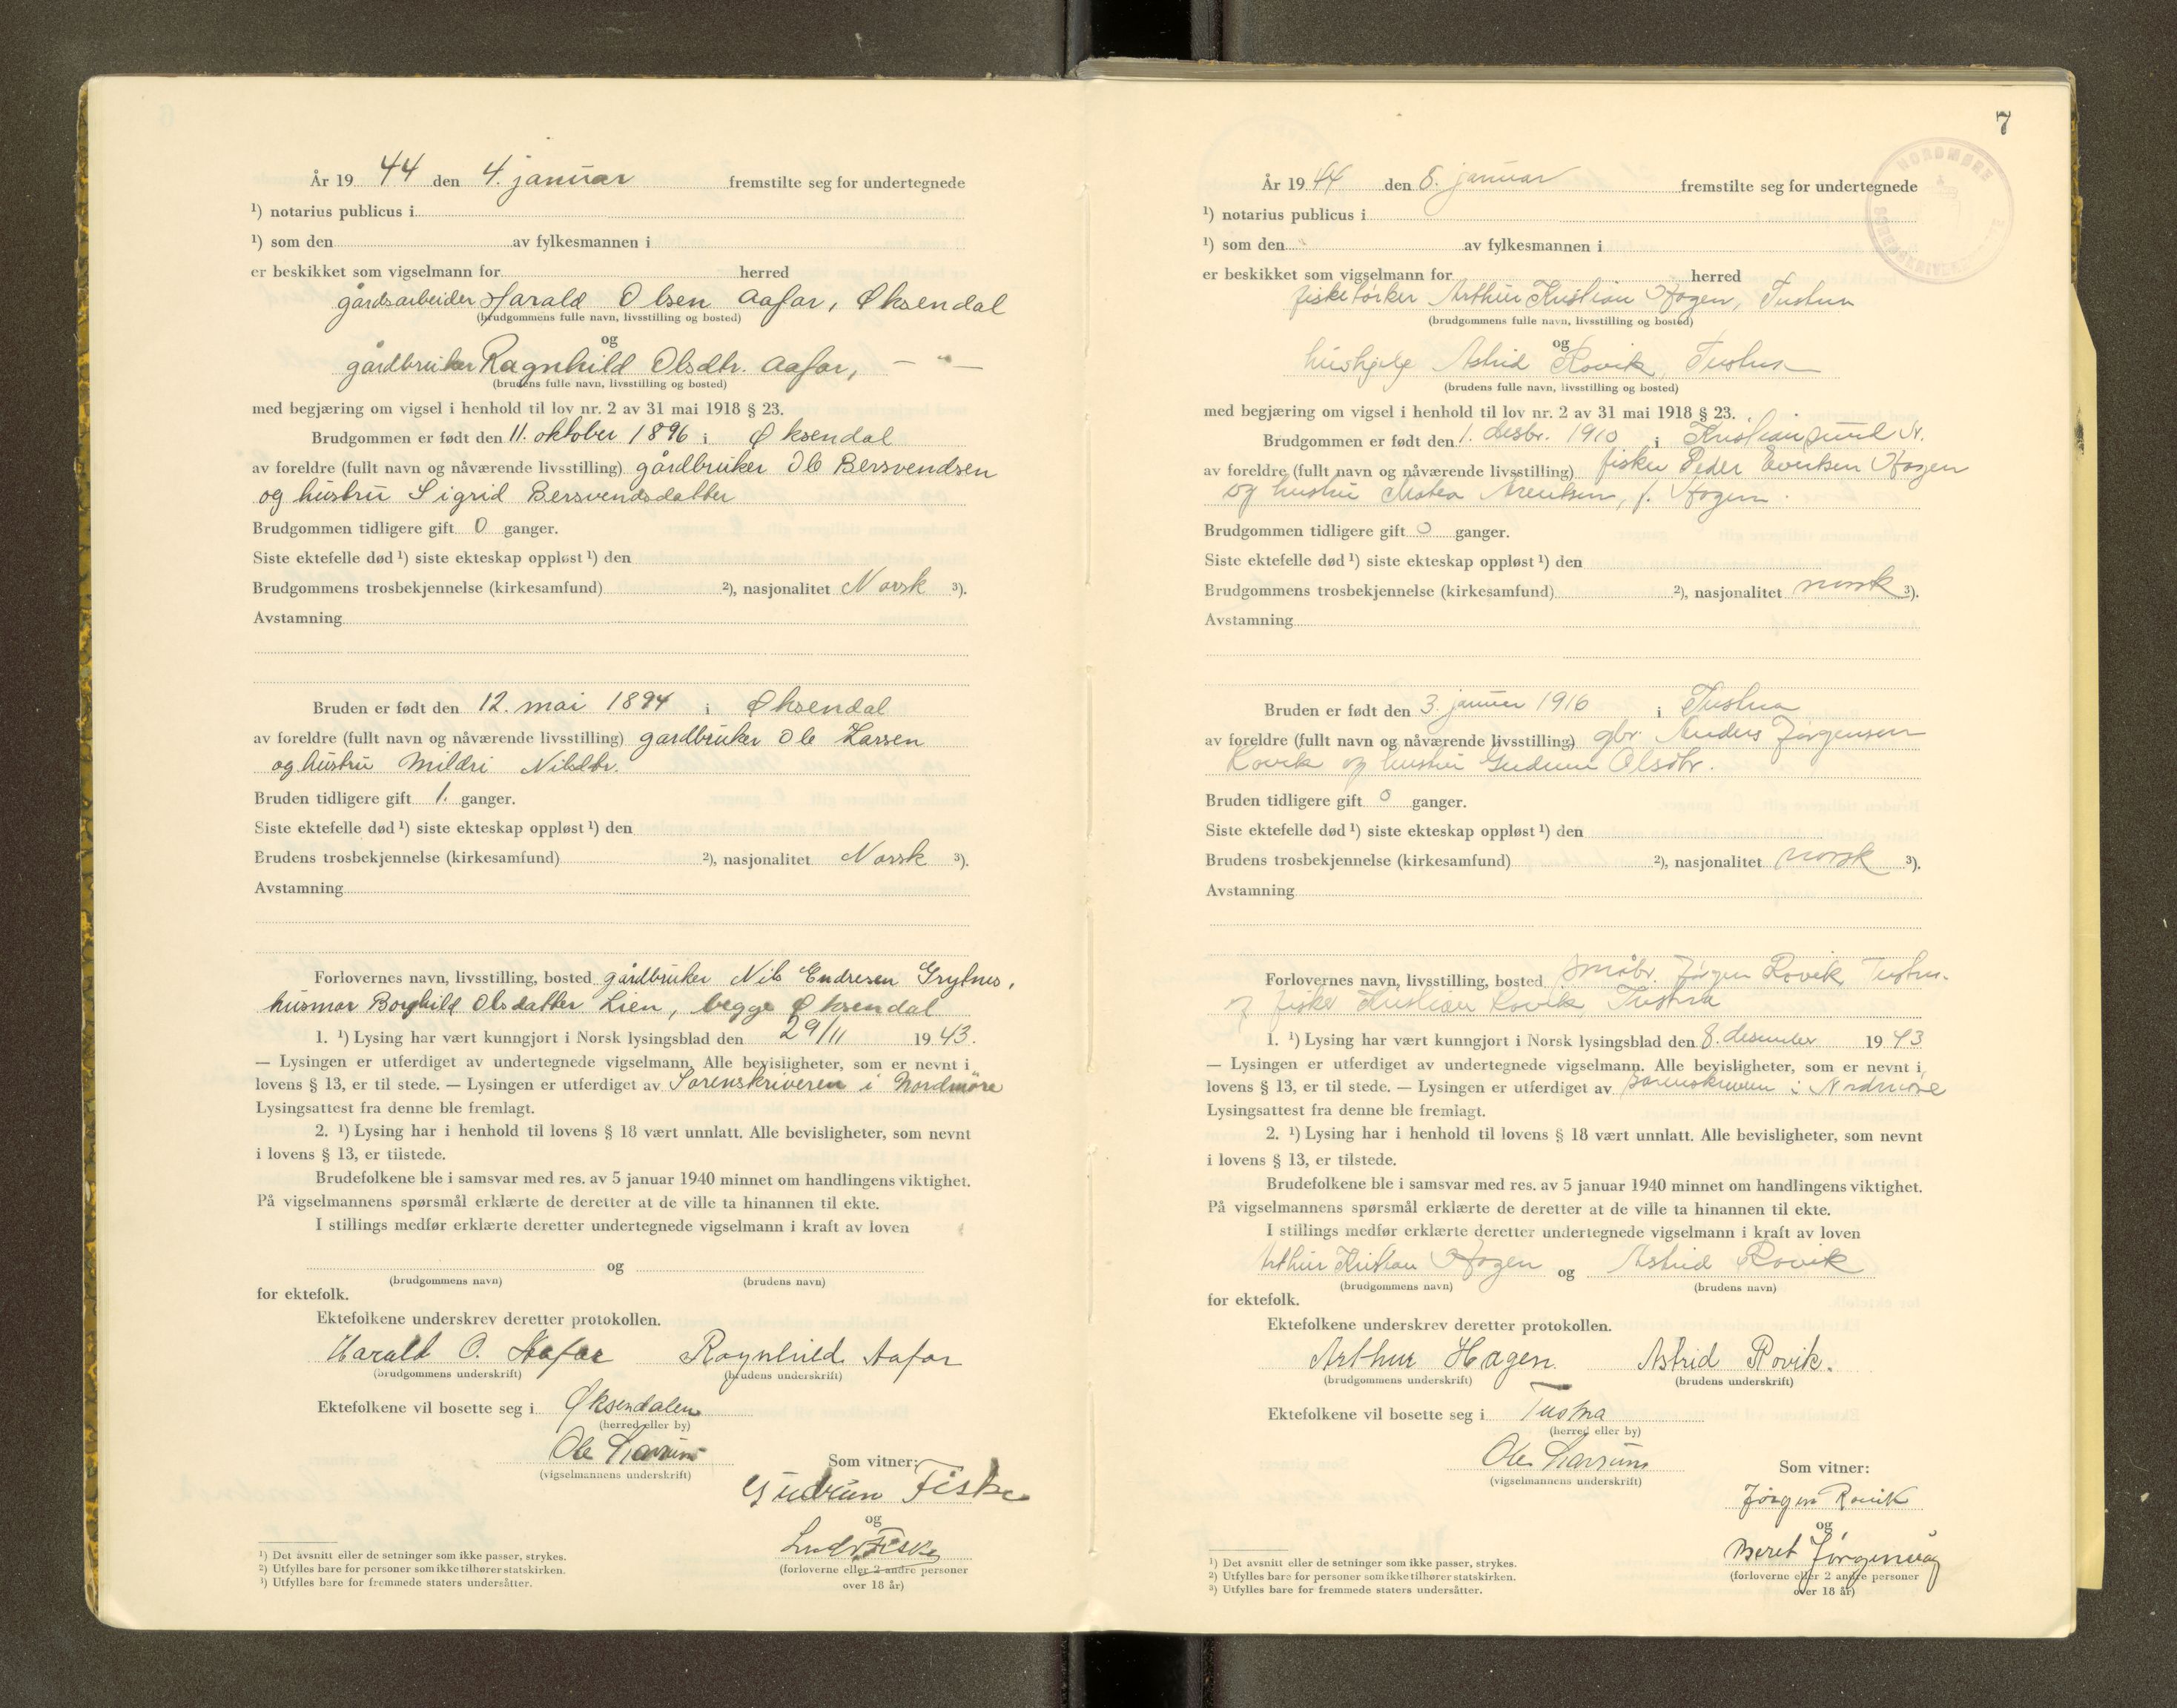 År 19 44 den 4. januar fremstilte seg for undertegnede
¹) notarius publicus i
¹) som den av fylkesmannen i
er beskikket som vigselmann for herred
gårdsarbeider Harald Olsen Aafar, Øksendal
(brudgommens fulle navn, livsstilling og bosted)
og
gårdbruker Ragnhild Olsdtr. Aafar, — " —
(brudens fulle navn, livsstilling og bosted)
med begjæring om vigsel i henhold til lov nr. 2 av 31 mai 1918 § 23.
Brudgommen er født den 11. oktober 1896 i Øksendal
av foreldre (fullt navn og nåværende livsstilling) gårdbruker Ole Bersvendsen
og hustru Sigrid Bersvendsdatter
Brudgommen tidligere gift 0 ganger.
Siste ektefelle død ¹) siste ekteskap oppløst ¹) den
Brudgommens trosbekjennelse (kirkesamfund) ²), nasjonalitet Norsk ³).
Avstamning
Bruden er født den 12. mai 1894 i Øksendal
av foreldre (fullt navn og nåværende livsstilling) gardbruker Ole Larsen
og hustru Mildri Nilsdtr.
Bruden tidligere gift 1. ganger.
Siste ektefelle død ¹) siste ekteskap oppløst ¹) den
Brudens trosbekjennelse (kirkesamfund) ²), nasjonalitet Norsk ³).
Avstamning
Forlovernes navn, livsstilling, bosted gårdbruker Nils Endresen Grytnes,
husmor Borghild Olsdatter Lien, begge Øksendal
1. ¹) Lysing har vært kunngjort i Norsk lysingsblad den 29/11 19 43.
— Lysingen er utferdiget av undertegnede vigselmann. Alle bevisligheter, som er nevnt i
lovens § 13, er til stede. — Lysingen er utferdiget av Sorenskriveren i Nordmöre
Lysingsattest fra denne ble fremlagt.
2. ¹) Lysing har i henhold til lovens § 18 vært unnlatt. Alle bevisligheter, som nevnt
i lovens § 13, er tilstede.
Brudefolkene ble i samsvar med res. av 5 januar 1940 minnet om handlingens viktighet.
På vigselmannens spørsmål erklærte de deretter at de ville ta hinannen til ekte.
I stillings medfør erklærte deretter undertegnede vigselmann i kraft av loven
og
(brudgommens navn) (brudens navn)
for ektefolk.
Ektefolkene underskrev deretter protokollen.
Harald O. Aafar Ragnhild Aafar
(brudgommens underskrift) (brudens underskrift)
Ektefolkene vil bosette seg i Øksendalen
(herred eller by)
Ole
(vigselmannens underskrift) Som vitner:
Gudrun Fiske
og
Fiske
(forloverne eller 2 andre personer
over 18 år)
¹) Det avsnitt eller de setninger som ikke passer, strykes.
²) Utfylles bare for personer som ikke tilhører statskirken.
³) Utfylles bare for fremmede staters undersåtter.
7
NORDMØRE
SORENSKRIVEREMBEDE
År 19 44 den 8. januar fremstilte seg for undertegnede
¹) notarius publicus i
¹) som den av fylkesmannen i
er beskikket som vigselmann for herred
fisketørker Arthur Kristian Hagen, Tustna
(brudgommens fulle navn, livsstilling og bosted)
og
hushjelp Astrid Rovik, Tustna
(brudens fulle navn, livsstilling og bosted)
med begjæring om vigsel i henhold til lov nr. 2 av 31 mai 1918 § 23.
Brudgommen er født den 1. desbr. 1910 i Kristiansund N.
av foreldre (fullt navn og nåværende livsstilling) fisker Peder Evertsen Hagen
og hustru Arentsen, f. Hagen.
Brudgommen tidligere gift 0 ganger.
Siste ektefelle død ¹) siste ekteskap oppløst ¹) den
Brudgommens trosbekjennelse (kirkesamfund) ²), nasjonalitet norsk ³).
Avstamning
Bruden er født den 3. januar 1916 i Tustna
av foreldre (fullt navn og nåværende livsstilling) gbr. Anders Jørgensen
Rovik og hustru Gudrun Olsdtr.
Bruden tidligere gift 0 ganger.
Siste ektefelle død ¹) siste ekteskap oppløst ¹) den
Brudens trosbekjennelse (kirkesamfund) ²), nasjonalitet norsk ³).
Avstamning
Forlovernes navn, livsstilling, bosted småbr. Jørgen Rovik, Tustna
og fisker Kristian Rovik, Tustna
1. ¹) Lysing har vært kunngjort i Norsk lysingsblad den 8. desember 19 43
— Lysingen er utferdiget av undertegnede vigselmann. Alle bevisligheter, som er nevnt i
lovens § 13, er til stede. — Lysingen er utferdiget av sorenskriveren i Nordmøre
Lysingsattest fra denne ble fremlagt.
2. ¹) Lysing har i henhold til lovens § 18 vært unnlatt. Alle bevisligheter, som nevnt
i lovens § 13, er tilstede.
Brudefolkene ble i samsvar med res. av 5 januar 1940 minnet om handlingens viktighet.
På vigselmannens spørsmål erklærte de deretter at de ville ta hinannen til ekte.
I stillings medfør erklærte deretter undertegnede vigselmann i kraft av loven
Arthur Kristian Hagen og Astrid Rovik
(brudgommens navn) (brudens navn)
for ektefolk.
Ektefolkene underskrev deretter protokollen.
Arthur Hagen. Astrid Rovik.
(brudgommens underskrift) (brudens underskrift)
Ektefolkene vil bosette seg i Tustna
(herred eller by)
Ole
(vigselmannens underskrift) Som vitner:
Jørgen Rovik
og
Beret Jørgenvåg
(forloverne eller 2 andre personer
over 18 år)
¹) Det avsnitt eller de setninger som ikke passer, strykes.
²) Utfylles bare for personer som ikke tilhører statskirken.
³) Utfylles bare for fremmede staters undersåtter.